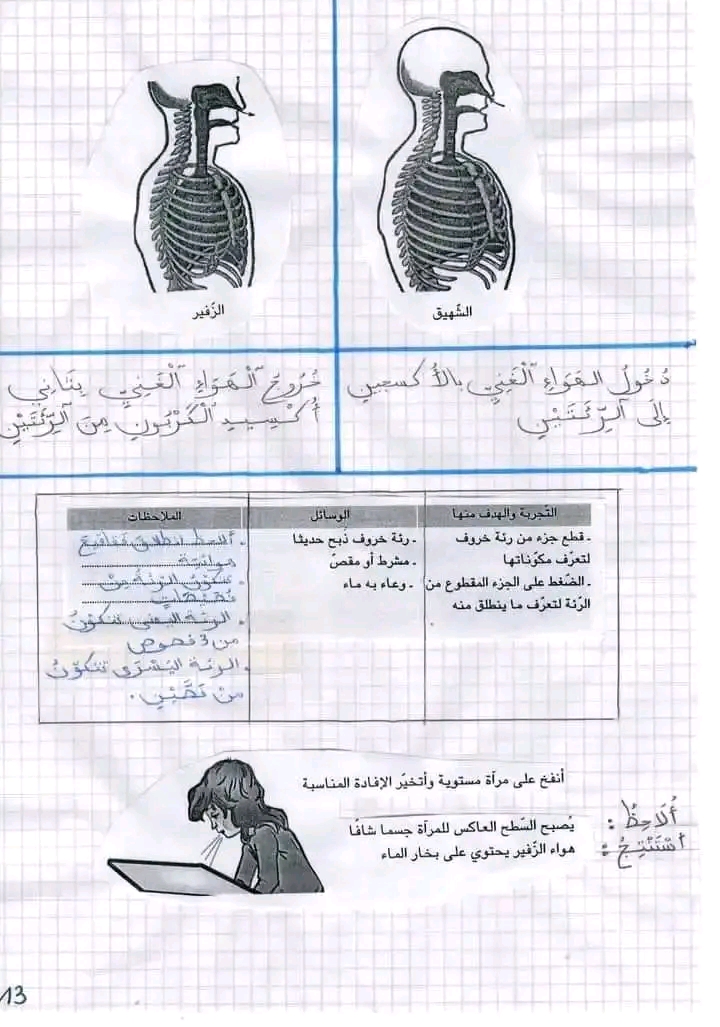 الشّهيق
الزّفير
دُخُولُ الهَوَاءِ ٱلْغَنِيِّ بالأُكسجين
إِلَى ٱلرِّئَتَيْنِ
خُرُوجُ ٱلْهَوَاءِ ٱلْغَنِيِّ بِثَانِي
أُكْسِيدِ ٱلْكَرْبُونِ مِنَ ٱلرِّئَتَيْنِ
التّجربة والهدف منها
- قطع جزء من رئة خروف
لتعرّف مكوّناتها
- الضّغط على الجزء المقطوع من
الرّئة لتعرّف ما ينطلق منه
الوسائل
- رئة خروف ذُبح حديثا
- مشرط أو مقصّ
- وعاء به ماء
الملاحظات
. ألاحظ انطلاق فقاقيع
هوائية
. تتكوّن الرئة من
فُصَيْصَاتٍ
. الرئة اليمنى تتكوّنُ
من 3 فصوص
. الرئة اليُسْرَى تتكوّنُ
مِنْ فَصَّيْنِ .
أنفخ على مرآة مستوية وأتخيّر الإفادة المناسبة
أُلَاحِظُ :
يُصبح السّطح العاكس للمرآة جسما شافّا
أَسْتَنْتِجُ :
هواء الزّفير يحتوي على بخار الماء
13